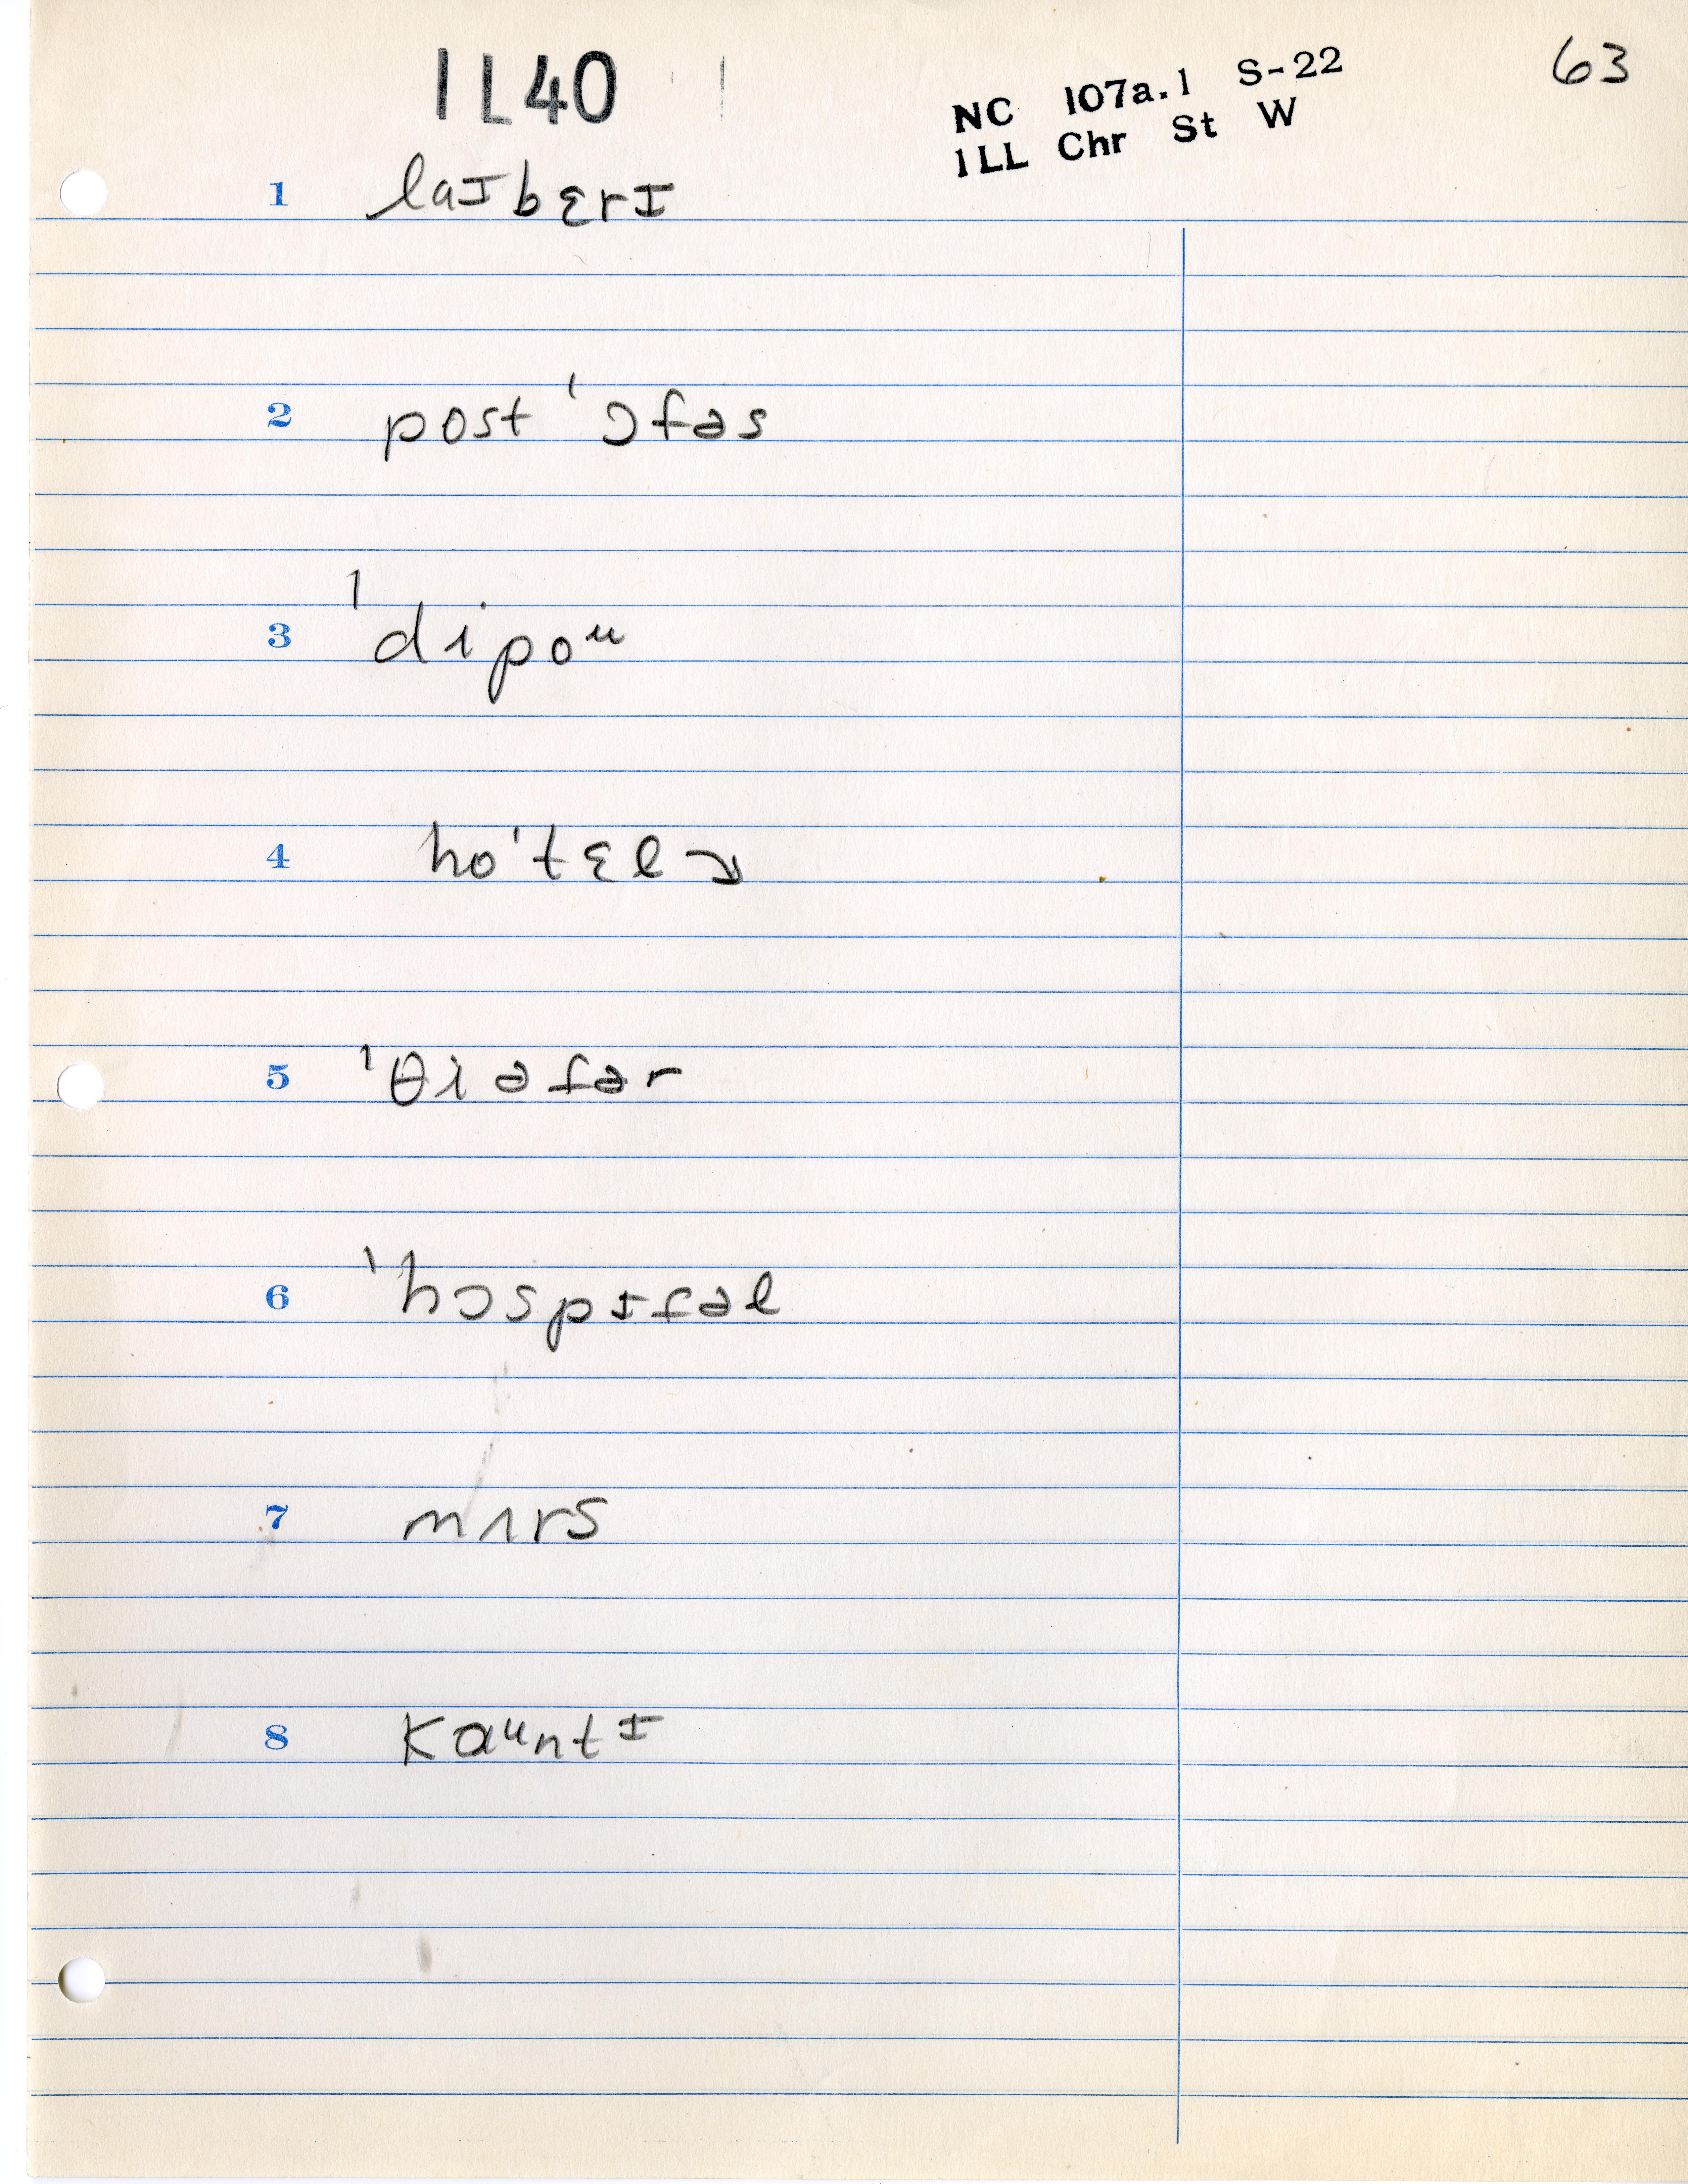 1L40
NC 107a.1 S-22
1LL Chr St W
63
1 laɪbɛrɪ
2 post ˈɔfəs
3 ˈdipoᵘ
4 hoˈtɛl ↘
5 ˈθiəfər
6 ˈhɔspɪfəl
7 nʌrs
8 kaᵘntɪ